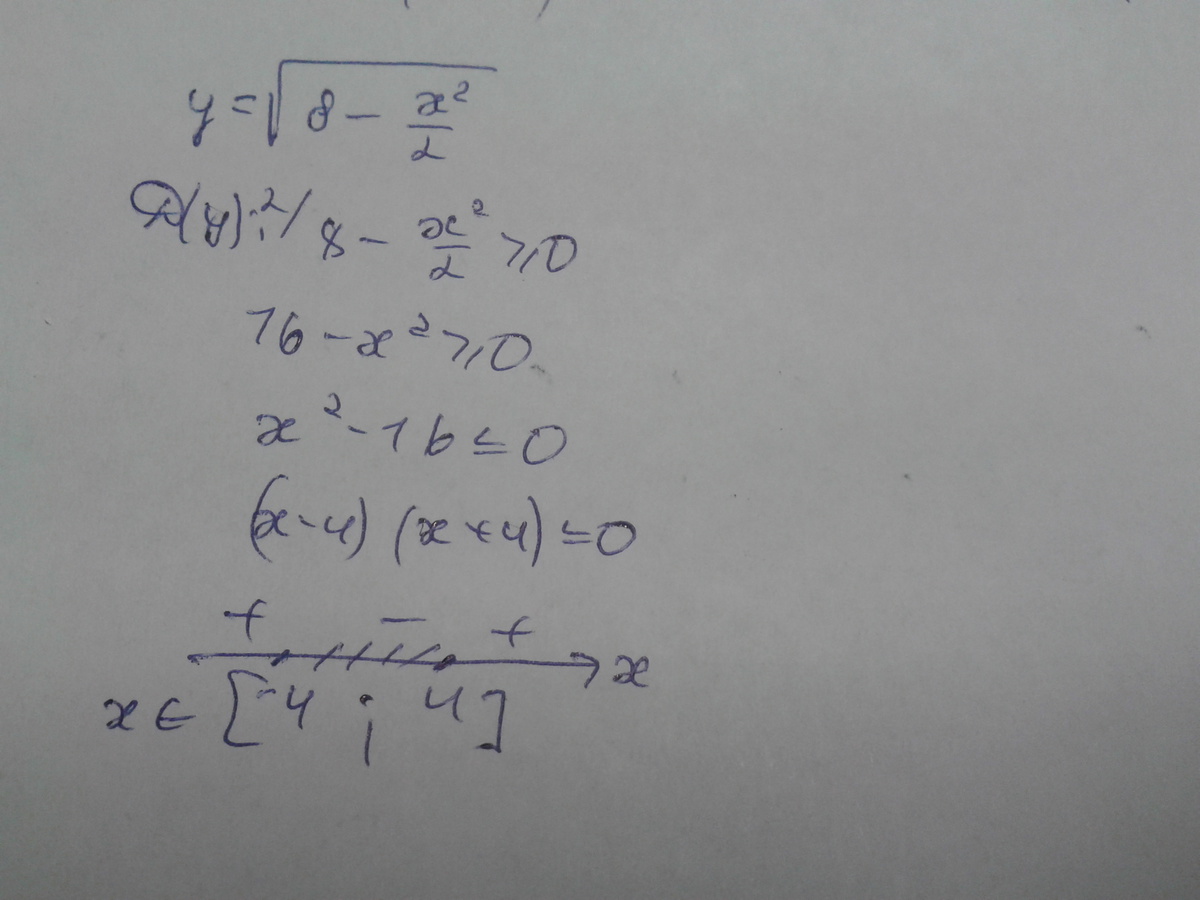 y = √(8 - x²/2)
D(y): ²/ 8 - x²/2 ⩾ 0
16 - x² ⩾ 0
x² - 16 ≤ 0
(x-4) (x+4) ≤ 0
+ - +
x
x ∈ [-4 ; 4]